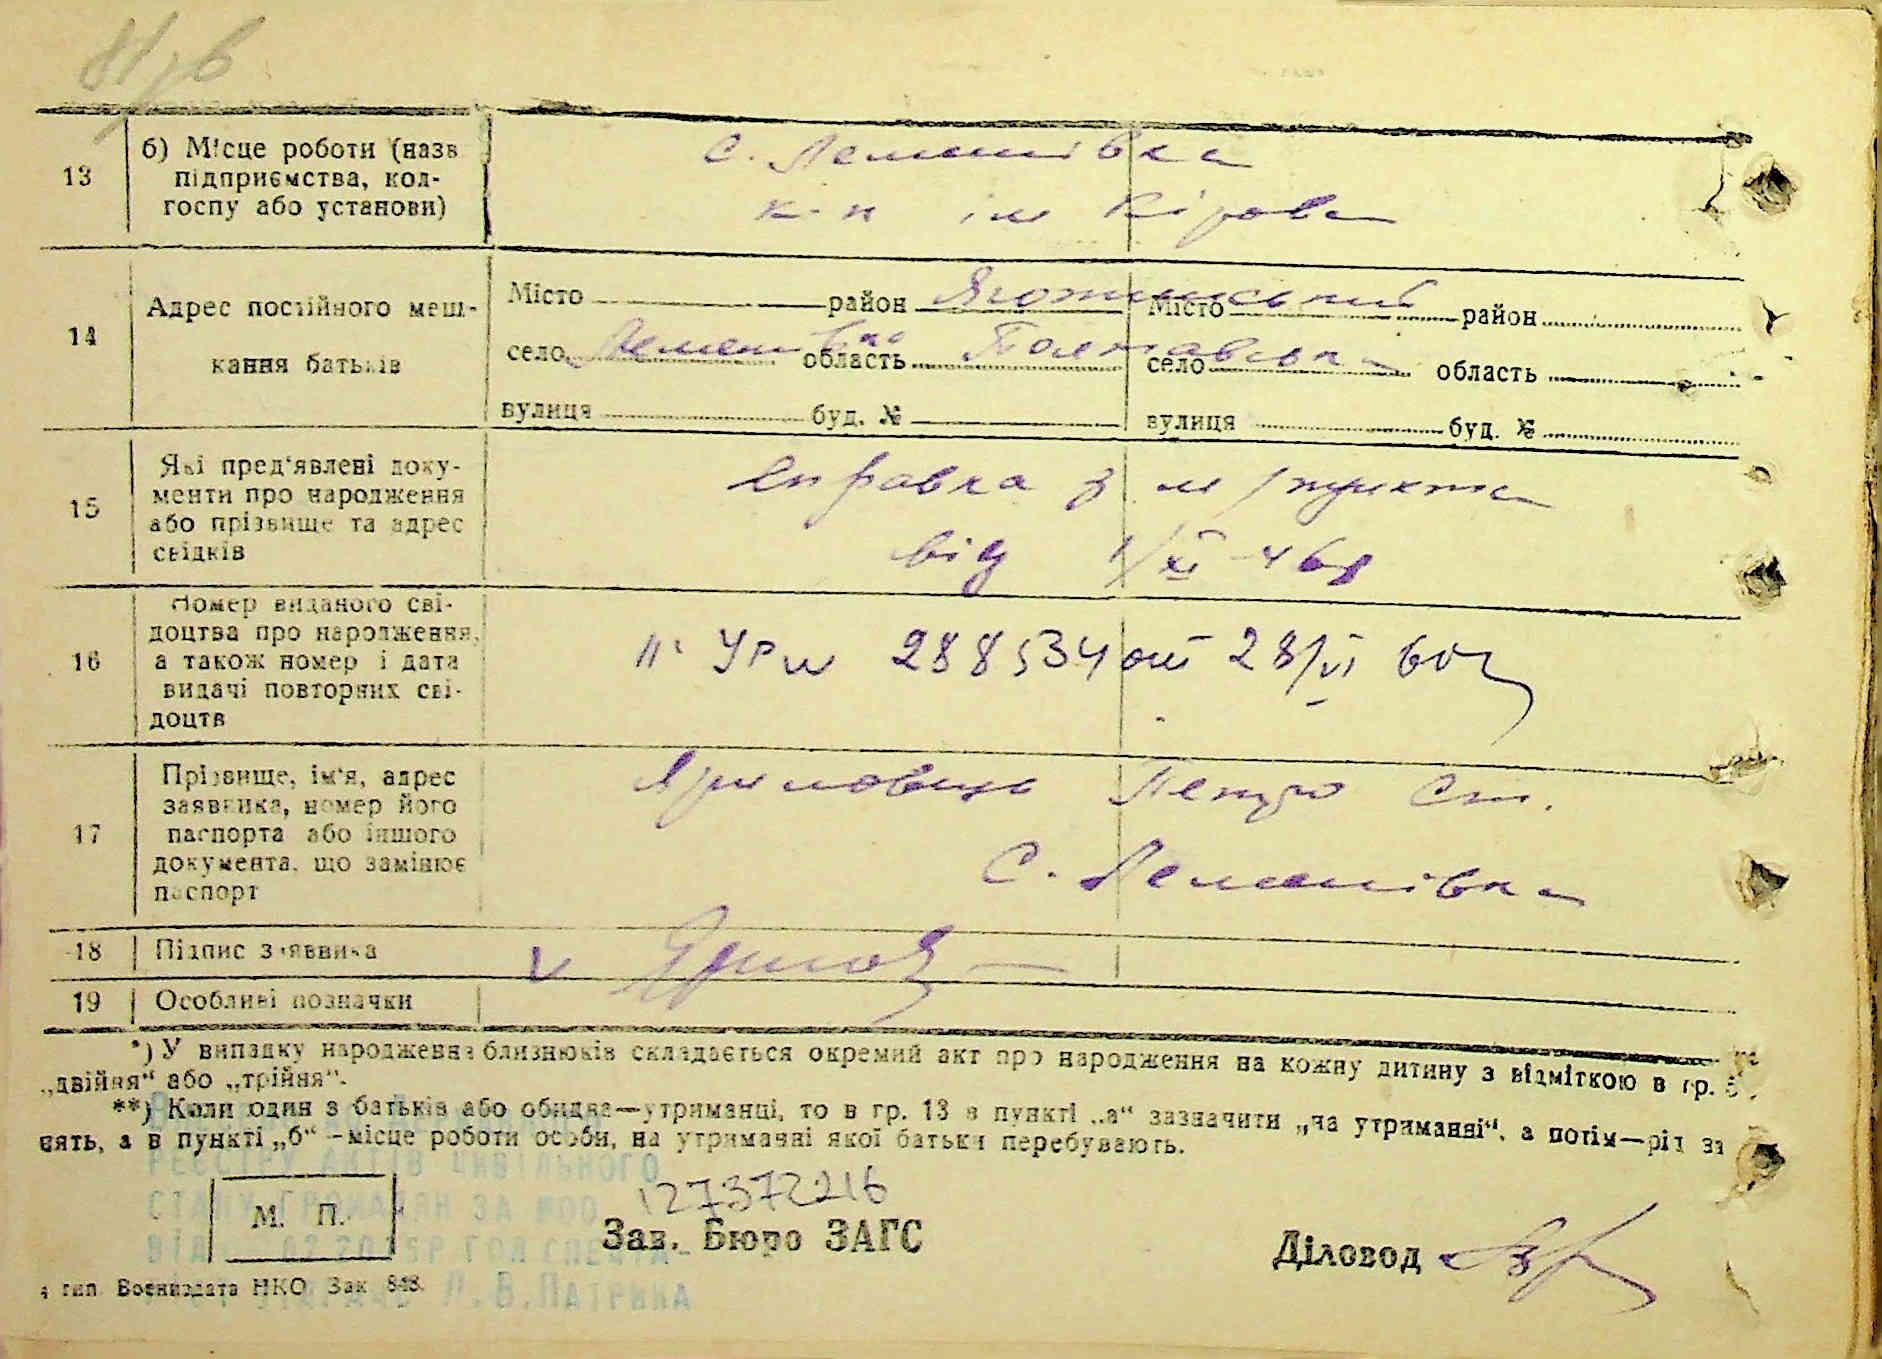 13
б) Місце роботи (назв
підприємства, кол-
госпу або установи)
с. Лемешівка
к-п ім Кірова
14
Адрес постійного меш-
кання батьків
Місто район Яготинський Місто район
село Лемешівка область Полтавська село область
вулиця буд. № вулиця буд. №
15
Які пред'явлені доку-
менти про народження
або прізвище та адрес
свідків
Справка з м/пункта
від 1/XI-46р
16
Номер виданого сві-
доцтва про народження,
а також номер і дата
видачі повторних сві-
доцтв
288534 от 28/VI 60г
17
Прізвище, ім'я, адрес
заявника, номер його
паспорта або іншого
документа, що замінює
паспорт
Петро Ст.
С. Лемешівка
18
Підпис заявника
19
Особливі позначки
*) У випадку народження близнюків складається окремий акт про народження на кожну дитину з відміткою в гр. 5
„двійня“ або „трійня“.
**) Коли один з батьків або обидва—утриманці, то в гр. 13 в пункті „а“ зазначити „на утриманні“, а потім—рід за
нять, а в пункті „б“ -місце роботи особи, на утриманні якої батьки перебувають.
РЕЄСТРУ АКТІВ ЦИВІЛЬНОГО
СТАНУ ГРОМАДЯН ЗА
М. П.
127372216
Зав. Бюро ЗАГС
Діловод
тип. Воениздата НКО Зак 848.
Л.В.ПАТРИКА